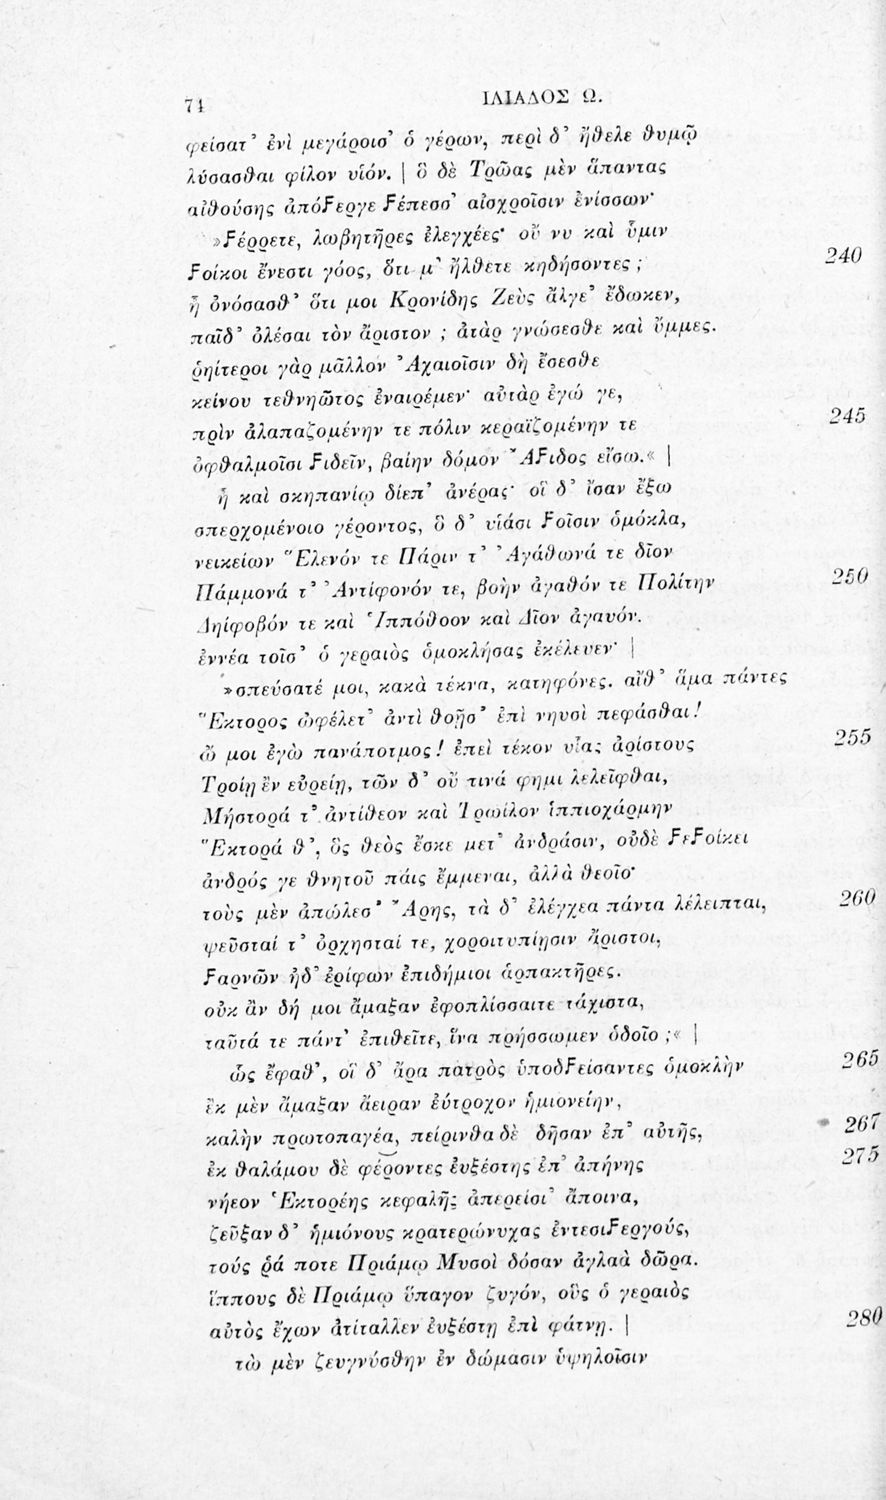 74 ΙΛΙΑΔΟΣ Ω.
φείσατ᾽ ἐνὶ μεγάροισ᾽ ὁ γέρων, περὶ δ᾽ ἤθελε θυμῷ
λύσασθαι φίλον υἱόν. | ὃ δὲ Τρῶας μὲν ἅπαντας
αἰθούσης ἀπόϝεργε ϝέπεσσ᾽ αἰσχροῖσιν ἐνίσσων·
»ϝέρρετε, λωβητῆρες ἐλεγχέες· οὔ νυ καὶ ὗμιν
ϝοίκοι ἔνεστι γόος, ὅτι μ᾽ ἤλθετε κηδήσοντες ; 240
ἦ ὀνόσασθ᾽ ὅτι μοι Κρονίδης Ζεὺς ἄλγε᾽ ἔδωκεν,
παῖδ᾽ ὀλέσαι τὸν ἄριστον ; ἀτὰρ γνώσεσθε καὶ ὔμμες.
ῥηίτεροι γὰρ μᾶλλον Ἀχαιοῖσιν δὴ ἔσεσθε
κείνου τεθνηῶτος ἐναιρέμεν· αὐτὰρ ἐγώ γε,
πρὶν ἀλαπαζομένην τε πόλιν κεραϊζομένην τε 245
ὀφθαλμοῖσι ϝιδεῖν, βαίην δόμον Ἄϝιδος εἴσω.« |
ἦ καὶ σκηπανίῳ δίεπ᾽ ἀνέρας· οἳ δ᾽ ἴσαν ἔξω
σπερχομένοιο γέροντος, ὃ δ᾽ υἱάσι ϝοῖσιν ὁμόκλα,
νεικείων Ἕλενόν τε Πάριν τ᾽ Ἀγάθωνά τε δῖον
Πάμμονά τ᾽ Ἀντίφονόν τε, βοὴν ἀγαθόν τε Πολίτην 250
Δηίφοβόν τε καὶ Ἱππόθοον καὶ Δῖον ἀγαυόν.
ἐννέα τοῖσ᾽ ὁ γεραιὸς ὁμοκλήσας ἐκέλευεν· |
»σπεύσατέ μοι, κακὰ τέκνα, κατηφόνες. αἴθ᾽ ἅμα πάντες
Ἕκτορος ὠφέλετ᾽ ἀντὶ θοῇσ᾽ ἐπὶ νηυσὶ πεφάσθαι!
ὤ μοι ἐγὼ πανάποτμος! ἐπεὶ τέκον υἷας ἀρίστους 255
Τροίῃ ἐν εὐρείῃ, τῶν δ᾽ οὔ τινά φημι λελεῖφθαι,
Μήστορά τ᾽ ἀντίθεον καὶ Τρωίλον ἱππιοχάρμην
Ἕκτορά θ᾽, ὃς θεὸς ἔσκε μετ᾽ ἀνδράσιν, οὐδὲ ϝεϝοίκει
ἀνδρός γε θνητοῦ πάις ἔμμεναι, ἀλλὰ θεοῖο·
τοὺς μὲν ἀπώλεσ᾽ Ἄρης, τὰ δ᾽ ἐλέγχεα πάντα λέλειπται, 260
ψεῦσταί τ᾽ ὀρχησταί τε, χοροιτυπίῃσιν ἄριστοι,
ϝαρνῶν ἠδ᾽ ἐρίφων ἐπιδήμιοι ἁρπακτῆρες.
οὐκ ἂν δή μοι ἄμαξαν ἐφοπλίσσαιτε τάχιστα,
ταῦτά τε πάντ᾽ ἐπιθεῖτε, ἵνα πρήσσωμεν ὁδοῖο ;« |
ὣς ἔφαθ᾽, οἳ δ᾽ ἄρα πατρὸς ὑποδϝείσαντες ὁμοκλὴν 265
ἐκ μὲν ἄμαξαν ἄειραν ἐύτροχον ἡμιονείην,
καλὴν πρωτοπαγέα, πείρινθα δὲ δῆσαν ἐπ᾽ αὐτῆς, 267
ἐκ θαλάμου δὲ φέροντες ἐυξέστης ἐπ᾽ ἀπήνης 275
νήεον Ἑκτορέης κεφαλῆς ἀπερείσι᾽ ἄποινα,
ζεῦξαν δ᾽ ἡμιόνους κρατερώνυχας ἐντεσιϝεργούς,
τούς ῥά ποτε Πριάμῳ Μυσοὶ δόσαν ἀγλαὰ δῶρα.
ἵππους δὲ Πριάμῳ ὕπαγον ζυγόν, οὓς ὁ γεραιὸς
αὐτὸς ἔχων ἀτίταλλεν ἐυξέστῃ ἐπὶ φάτνῃ. | 280
τὼ μὲν ζευγνύσθην ἐν δώμασιν ὑψηλοῖσιν